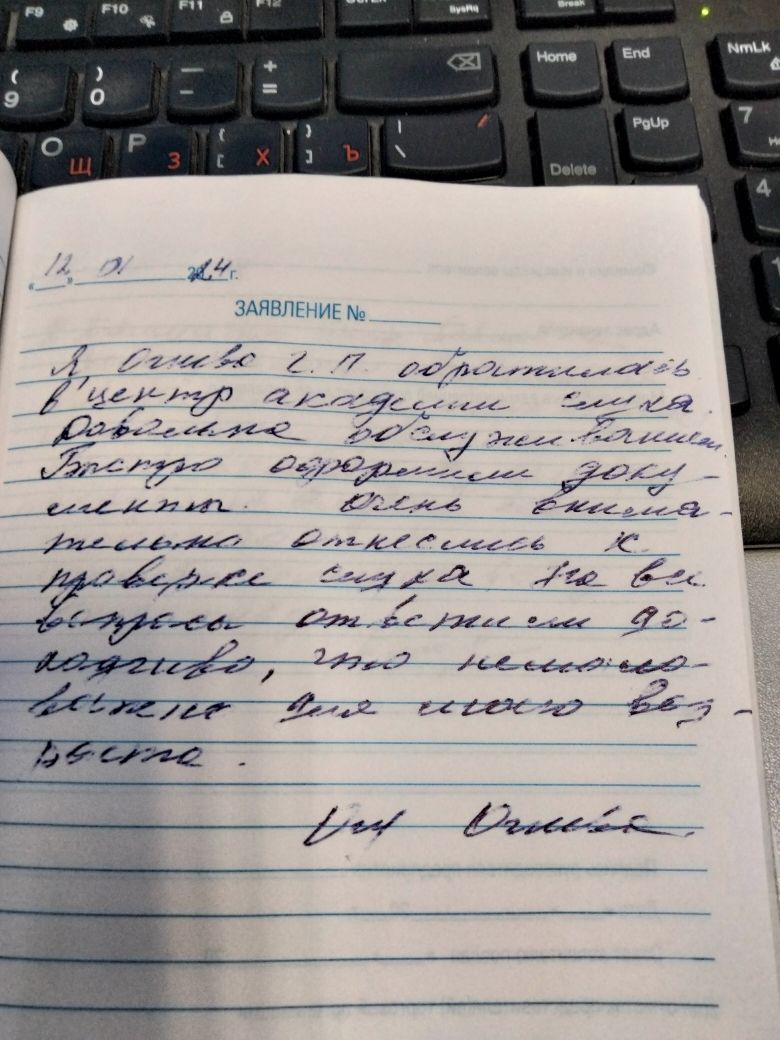 F9 F10 F11 F12 SysRq Break
( 9 ) 0 — - + = Home End NmLk
О Щ P З { [ Х } ] Ъ | \ / Delete PgUp 7
4
«12» 01 2024 г.
ЗАЯВЛЕНИЕ №
Я, Огнево Г. П. обратилась
в центр академии слуха.
Довольна обслуживанием.
Быстро оформили доку-
менты. Очень внима-
тельно отнеслись к
проверке слуха. На все
вопросы ответили до-
ходчиво, что немало-
важно для моего воз-
раста.